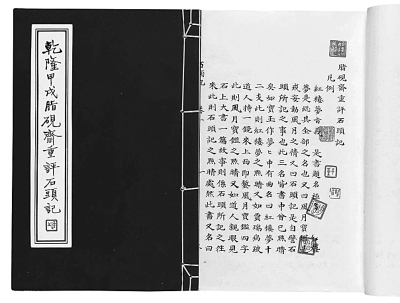 乾隆甲戌脂硯齋重評石頭記
脂硯齋重評石頭記
凡例
紅樓夢旨義 是書題名極
夢是總其全部之名也又曰風月寶
戒妄動風月之情又曰石頭記是自譬石
頭所記之事也此三名皆書中曾已點睛
矣如寶玉作夢夢中有曲名曰紅樓夢十
二支此則紅樓夢之點睛又如賈瑞病跛
道人持一鏡來上面即鏨風月寶鑑四字
此則風月寶鑑之點睛又如道人親眼見
石上大書一篇故事則係石頭所記之往
來此則石頭記之點睛處然此書又名曰